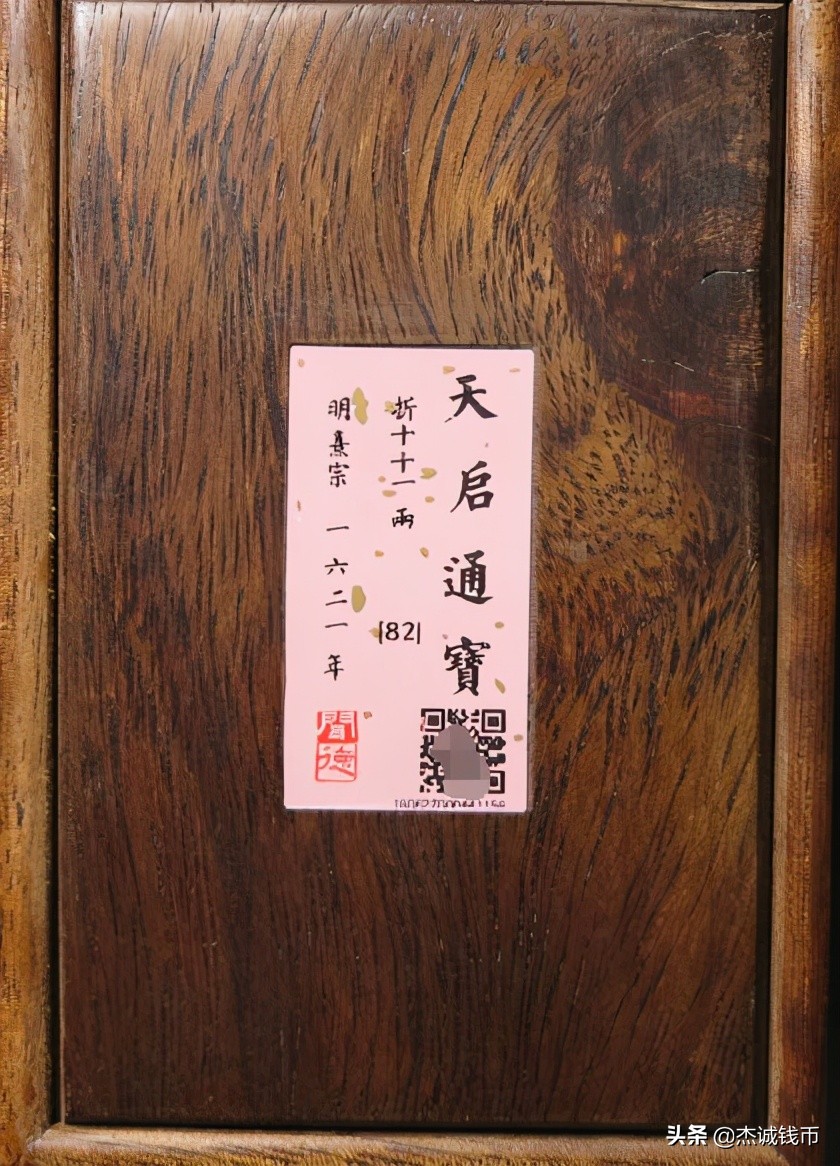 天启通寶
折十十一兩
[82]
明熹宗 一六二一年
聞德
头条 @杰诚钱币